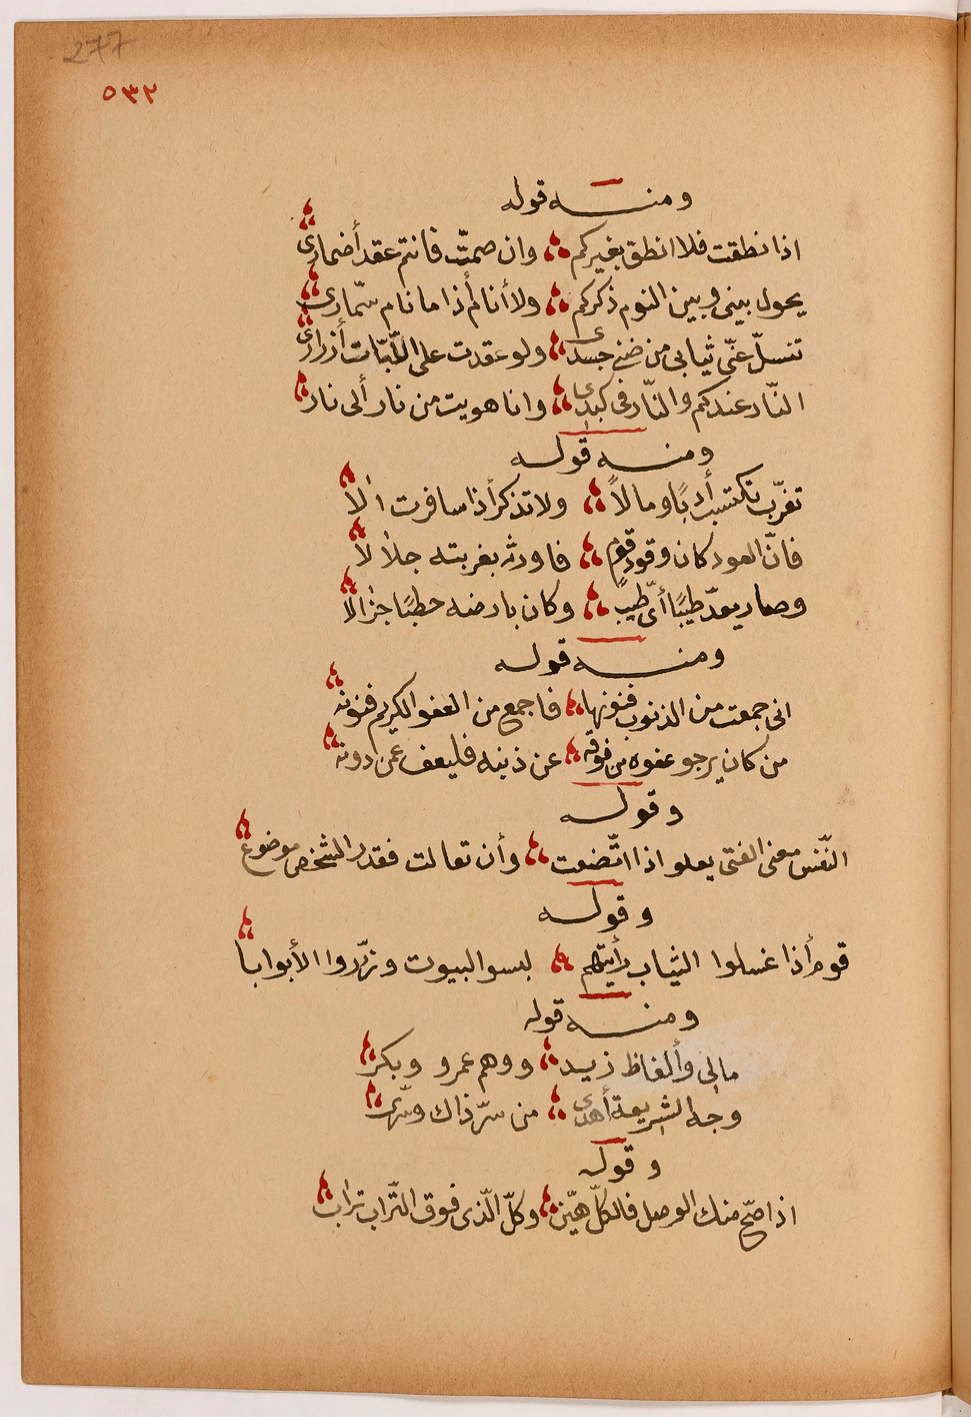 277
٥٣٢
ومنه قوله
اذا نطقت فلا انطق بغيركم وان صمتّ فانتم عقد أضمارى
يحول بينى وبين النوم ذكركم ولا أنام أذا ما نام سمّارى
تنسلّ عنّى ثيابى من ضنى جسدى ولو عقدت على اللّبّات أزرارى
النّار عندكم والنّار فى كبدى وانا هويت من نار ألى نار
ومنه قوله
تغرّب تكتسب أدبًا ومالاً ولا تذكر أذا سافرت الا
فانّ العود كان وقود قومٍ فاورثه بغربته جلالا
وصار يعدّ طيبًا أىّ طيبٍ وكان بارضه حطبًا جزالا
ومنه قوله
انى جمعت من الذنوب فنونها فاجمع من العفو الكريم فنونه
من كان يرجو عفوه من فوقه عن ذنبه فليعف عمن دونه
وقوله
النّفس معنى الفتى يعلو اذا اتّضعت وأن تعالت فقدر الشخص موضوع
وقوله
قوم أذا غسلوا الثياب رأيتهم لبسوا البيوت وزرّروا الأبوابا
ومنه قوله
مالى وألفاظ زيد ووهم عمرو وبكر
وجه الشريعة أهدى من سرّ ذاك وسرّى
وقوله
اذا صحّ منك الوصل فالكلّ هيّن وكلّ الّذى فوق التّراب تراب